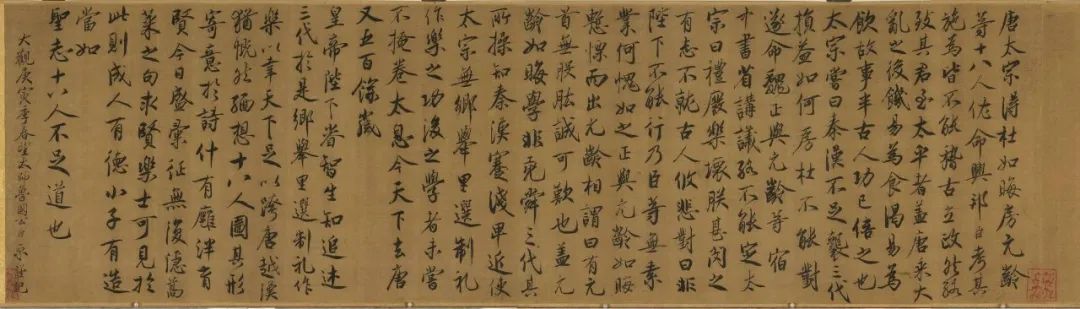 唐太宗得杜如晦房元齡
等十八人佐命興邦臣考其
施爲皆不能稽古立政然終
致其君至太平者蓋唐乘大
亂之後饑易爲食渴易爲
飲故事半古人功已倍之也
太宗嘗曰秦漢不足襲三代
損益如何房杜不能對
遂命魏正與元齡等宿
中書省講議終不能定太
宗曰禮廢樂壞朕甚閔之
有志不就古人攸悲對曰非
陛下不能行乃臣等無素
業何愧如之正與元齡如晦
慙慄而出元齡相謂曰有元
首無股肱誠可歎也蓋元
齡如晦學非堯舜三代其
所操知秦漢蹇淺卑近使
太宗無鄉舉里選制礼
作樂之功後之學者未嘗
不掩卷太息今天下去唐
又五百餘歲
皇帝陛下睿智生知追述
三代於是鄉舉里選制礼作
樂以幸天下足以跨唐越漢
猶慨然緬想十八人圖其形
寄意於詩什有廱泮育
賢今日盛彙征無復隱蒿
萊之句求賢樂士可見於
此則成人有德小子有造
當如
聖志十八人不足道也
大觀庚寅季春望太師魯國公臣京謹記